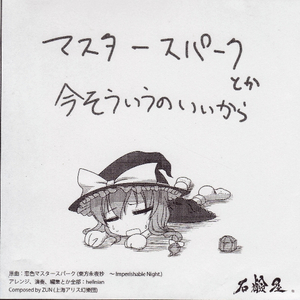 マスタースパーク
とか
今そういうのいいから
原曲：恋色マスタースパーク (東方永夜抄　～Imperishable Night)
アレンジ、演奏、編集とか全部：hellnian
Composed by ZUN (上海アリス幻樂団)
石鹸屋。